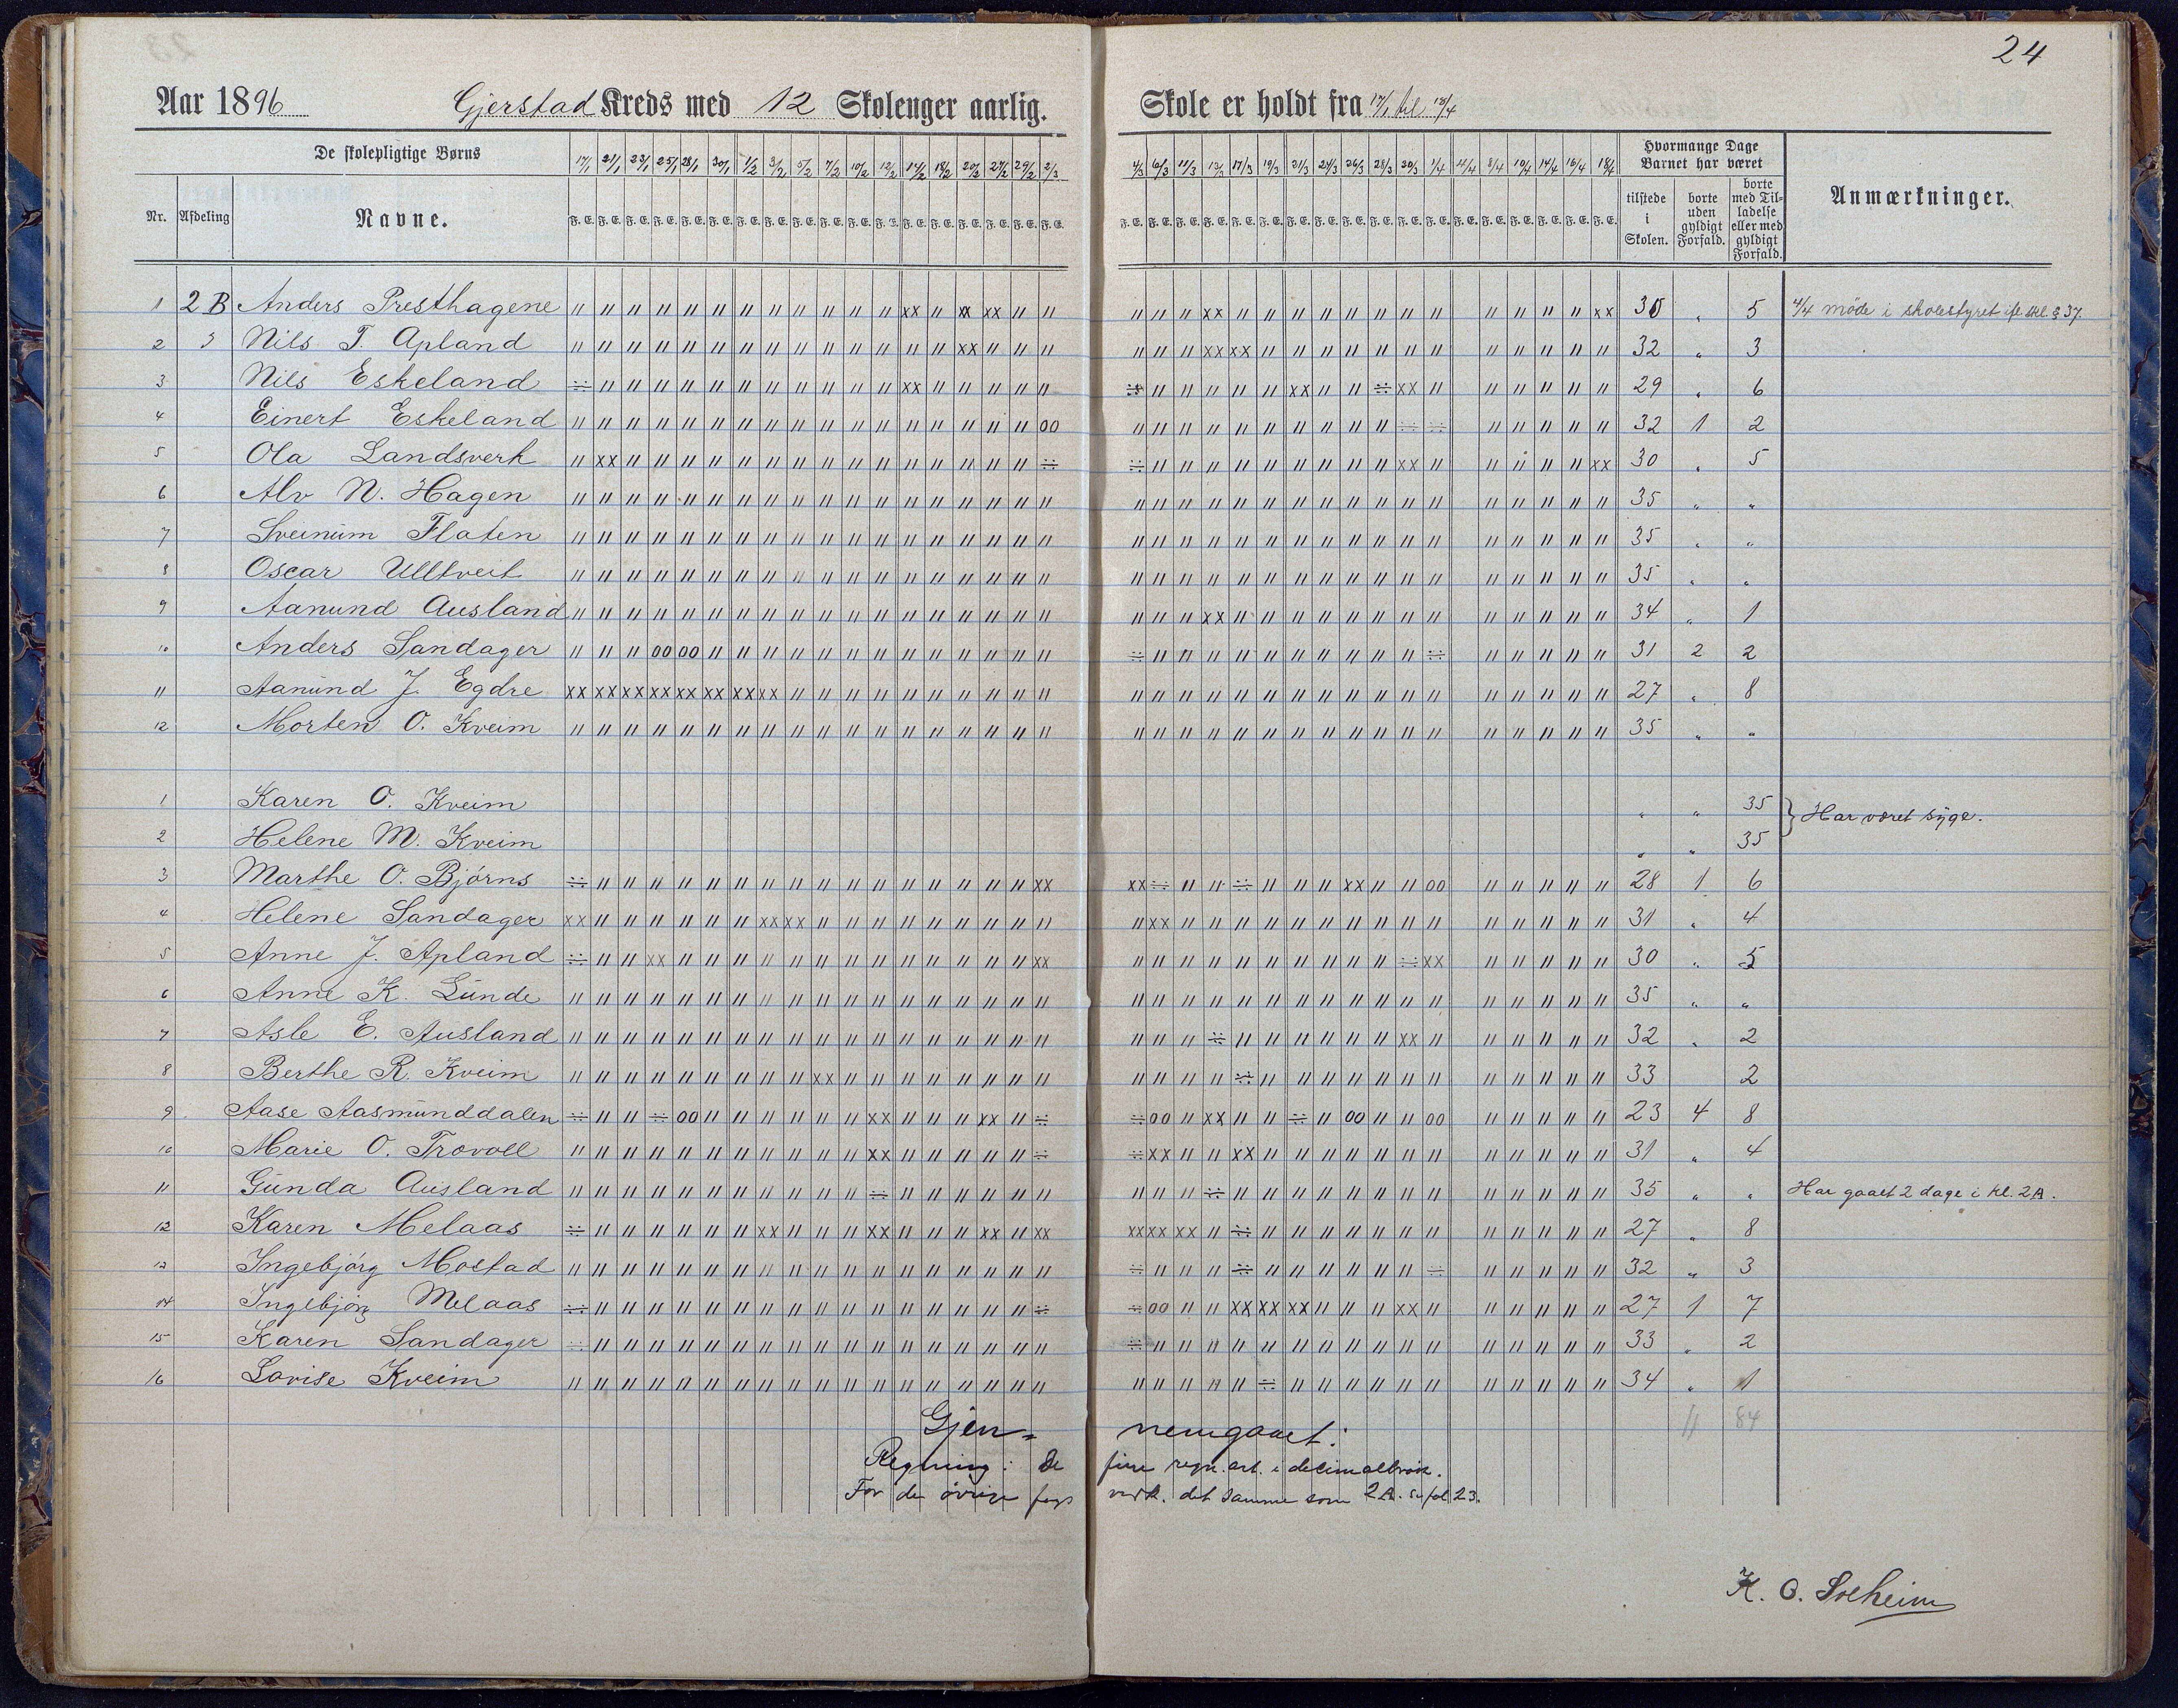 24
Aar 1896 Gjerstad Kreds med 12 Skolenger aarlig. Skole er holdt fra 17/1 til 18/4
De skolepligtige Børns 17/1 21/1 23/1 25/1 28/1 30/1 1/2 3/2 5/2 7/2 10/2 12/2 14/2 18/2 20/2 27/2 29/2 2/3 4/3 6/3 11/3 13/3 17/3 19/3 21/3 24/3 26/3 28/3 30/3 1/4 4/4 8/4 10/4 14/4 16/4 18/4 Hvormange Dage Barnet har været
Nr. Afdeling Navne. F. E. tilstede i Skolen. borte uden gyldigt Forfald. borte med Tilladelse eller med gyldigt Forfald. Anmærkninger.
1 2 B Anders Presthagene 30 „ 5 4/4 møde i skolestyret skl. § 37.
2 Nils T. Apland 32 „ 3
3 Nils Eskeland 29 „ 6
4 Einert Eskeland 32 1 2
5 Ola Landsverk 30 „ 5
6 Alv N. Hagen 35 „ „
7 Sveinum Flaten 35 „ „
8 Oscar Ulltveit 35 „ „
9 Aanund Ausland 34 „ 1
10 Anders Sandager 31 2 2
11 Aanund J. Egdre 27 „ 8
12 Morten O. Kveim 35 „ „
1 Karen O. Kveim „ „ 35
2 Helene M. Kveim „ „ 35 } Har været syge.
3 Marthe O. Bjørns 28 1 6
4 Helene Sandager 31 „ 4
5 Anne J. Apland 30 „ 5
6 Anne K. Lunde 35 „ „
7 Asle E. Ausland 32 „ 2
8 Berthe R. Kveim 33 2
9 Aase Aasmunddalen 23 4 8
10 Marie O. Trovoll 31 „ 4
11 Gunda Ausland 35 „ „ Har gaaet 2 dage i kl. 2A.
12 Karen Melaas 27 „ 8
13 Ingebjørg Mostad 32 „ 3
14 Ingebjørg Melaas 27 1 7
15 Karen Sandager 33 „ 2
16 Lovise Kveim 34 „ 1
11 84
Gjen- nemgaaet:
Regning: De fire regn. art. i decimalbrøk.
For de øvrige fags vedk. det samme som 2A. se fol 23.
K. O. Solheim